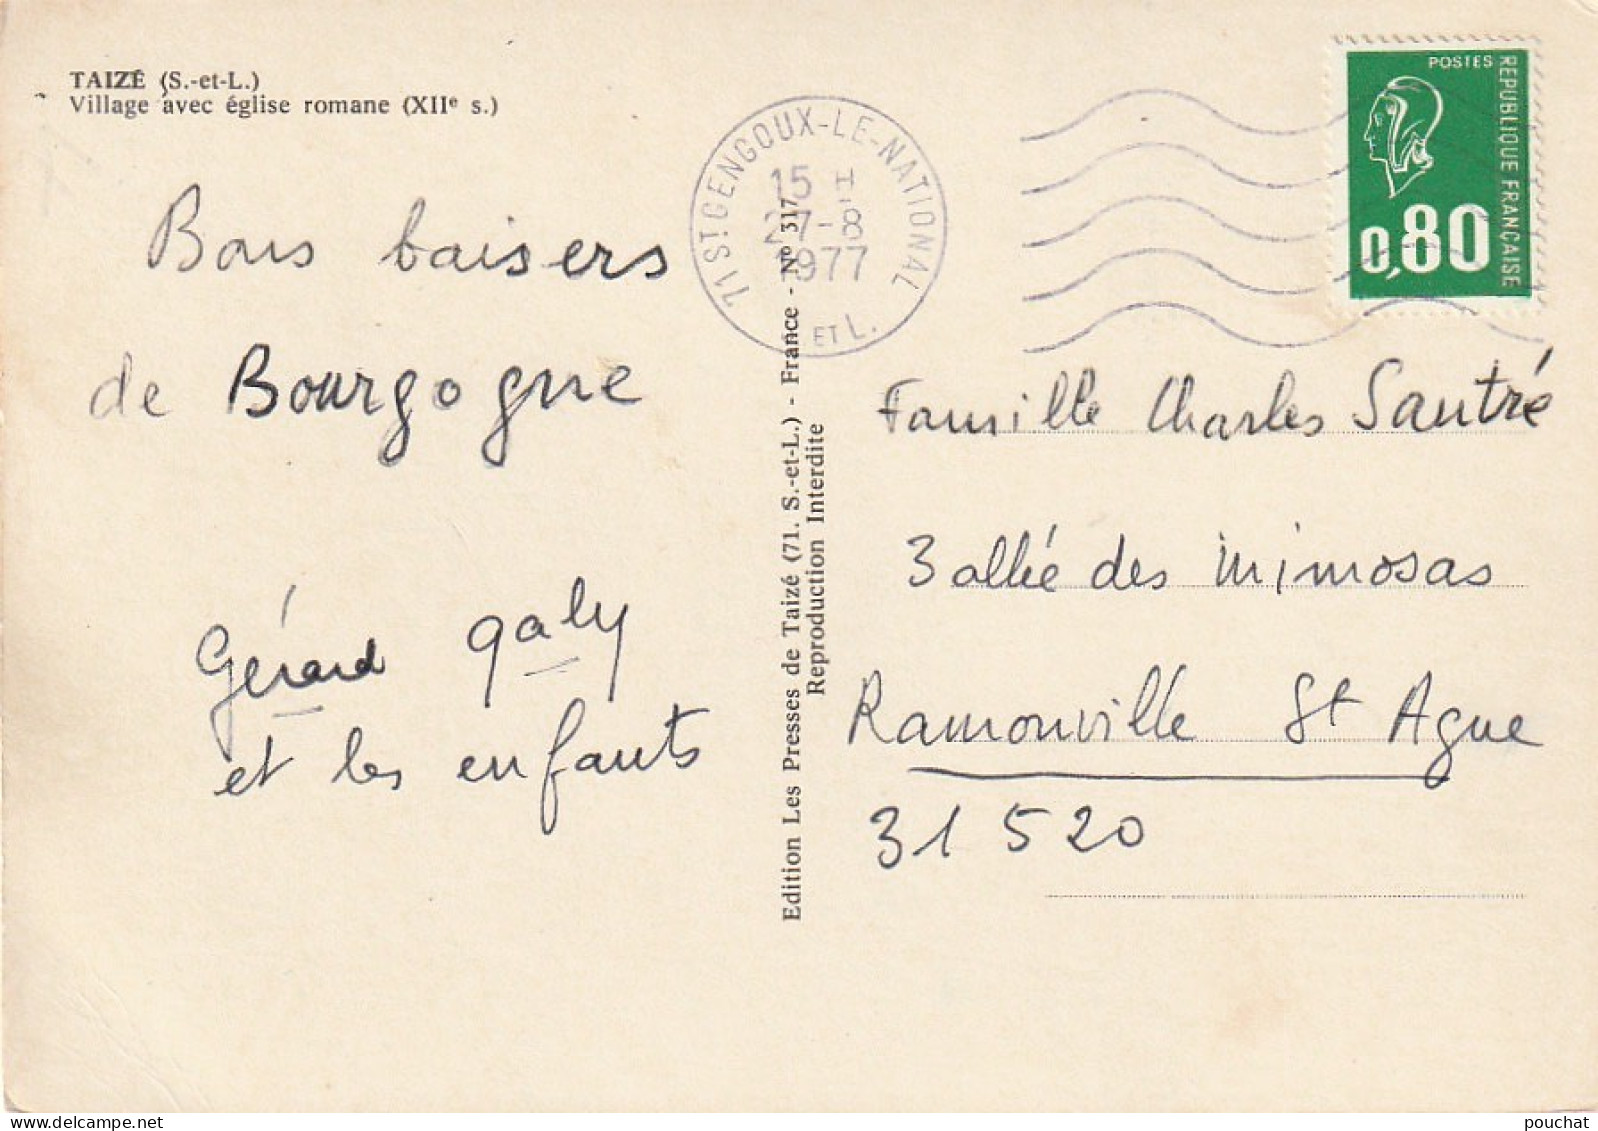 TAIZÉ (S.-et-L.)
Village avec église romane (XIIe s.)
Bons baisers
de Bourgogne
Gérard galy
et les enfants
71 ST GENGOUX-LE-NATIONAL
15 H
27-8
1977
ET L.
Edition Les Presses de Taizé (71. S.-et-L.) - France - No 317
Reproduction Interdite
POSTES
REPUBLIQUE FRANÇAISE
0,80
Famille Charles Sautré
3 allée des mimosas
Ramonville St Agne
31520
pouchat